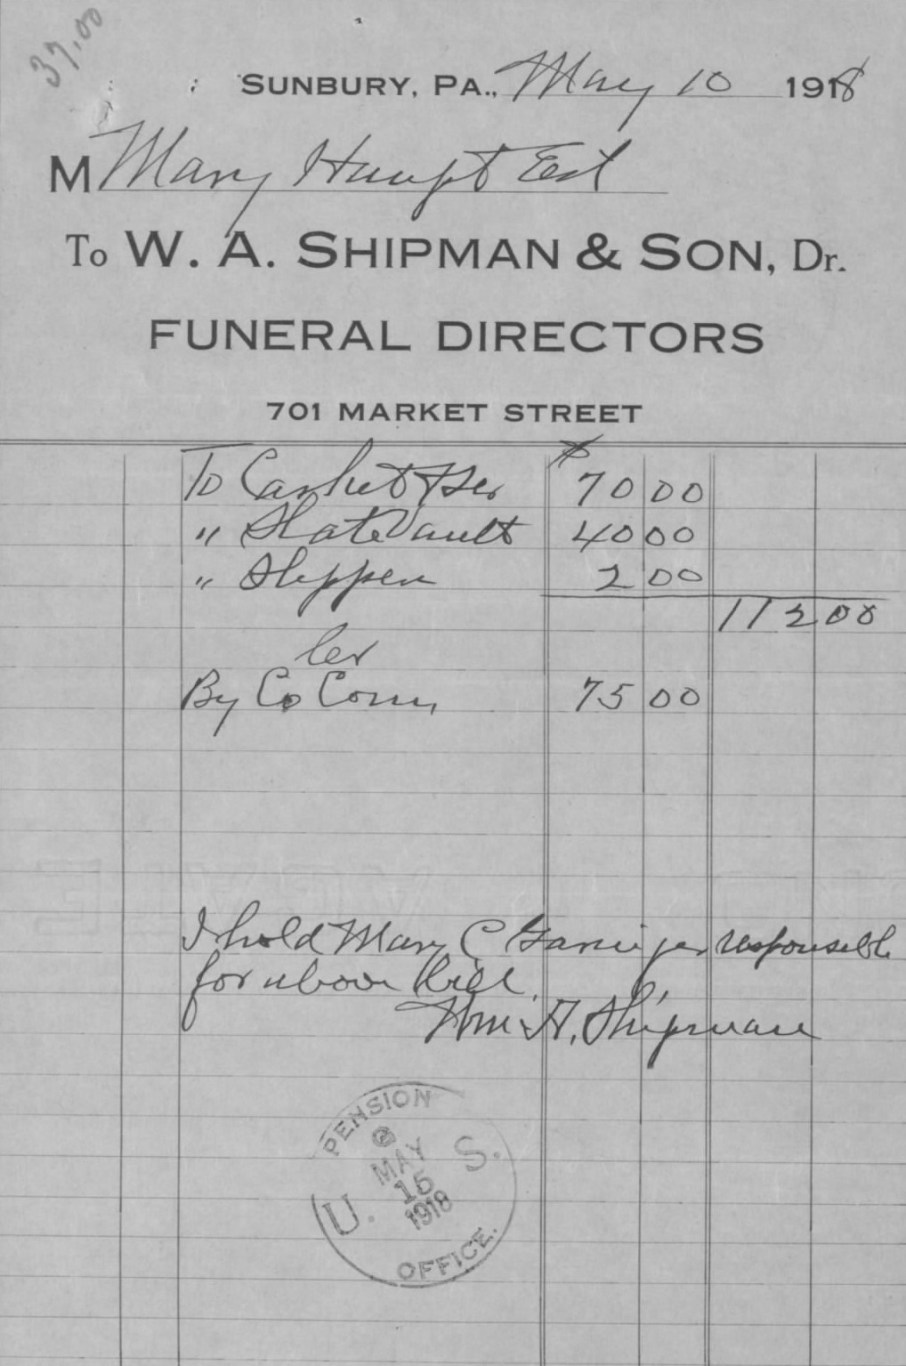 37.00
SUNBURY, PA., May 10 1918
M Mary Haupt Est
To W. A. SHIPMAN & SON, Dr.
FUNERAL DIRECTORS
701 MARKET STREET
$
To Casket & Ser 70 00
" Slate Vault 40 00
" Slippers 2 00
112 00
Cr
By Co Com, 75 00
I hold Mary C responsible
for above bill.
Wm. A. Shipman
PENSION
U. S.
MAY
15
1918
OFFICE.